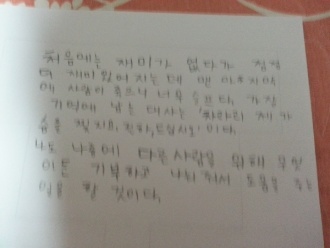 처음에는 재미가 없다가 점점
더 재미있어 지는데 맨 마지막
에 사람이 죽으니 너무 슬프다. 가장
기억에 남는 대사는 차라리 제가
술을 필지요, 전하, 드십시오! 이다.
나도 나중에 다른 사람을 위해 무엇
이든 기부하고 나눠 줘서 도움을 주는
일을 할 것이다.